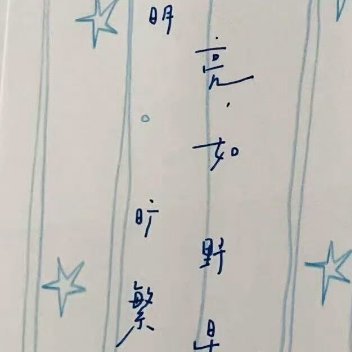 明亮
如
旷野
繁星